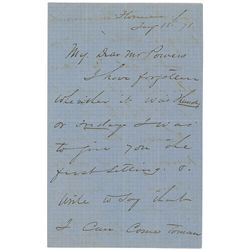 Florence
Jany 15. 71
My Dear Mr Powers
I have forgotten
whether it was Thursday
or Friday I was
to give you the
first sitting &
write to say that
I can come